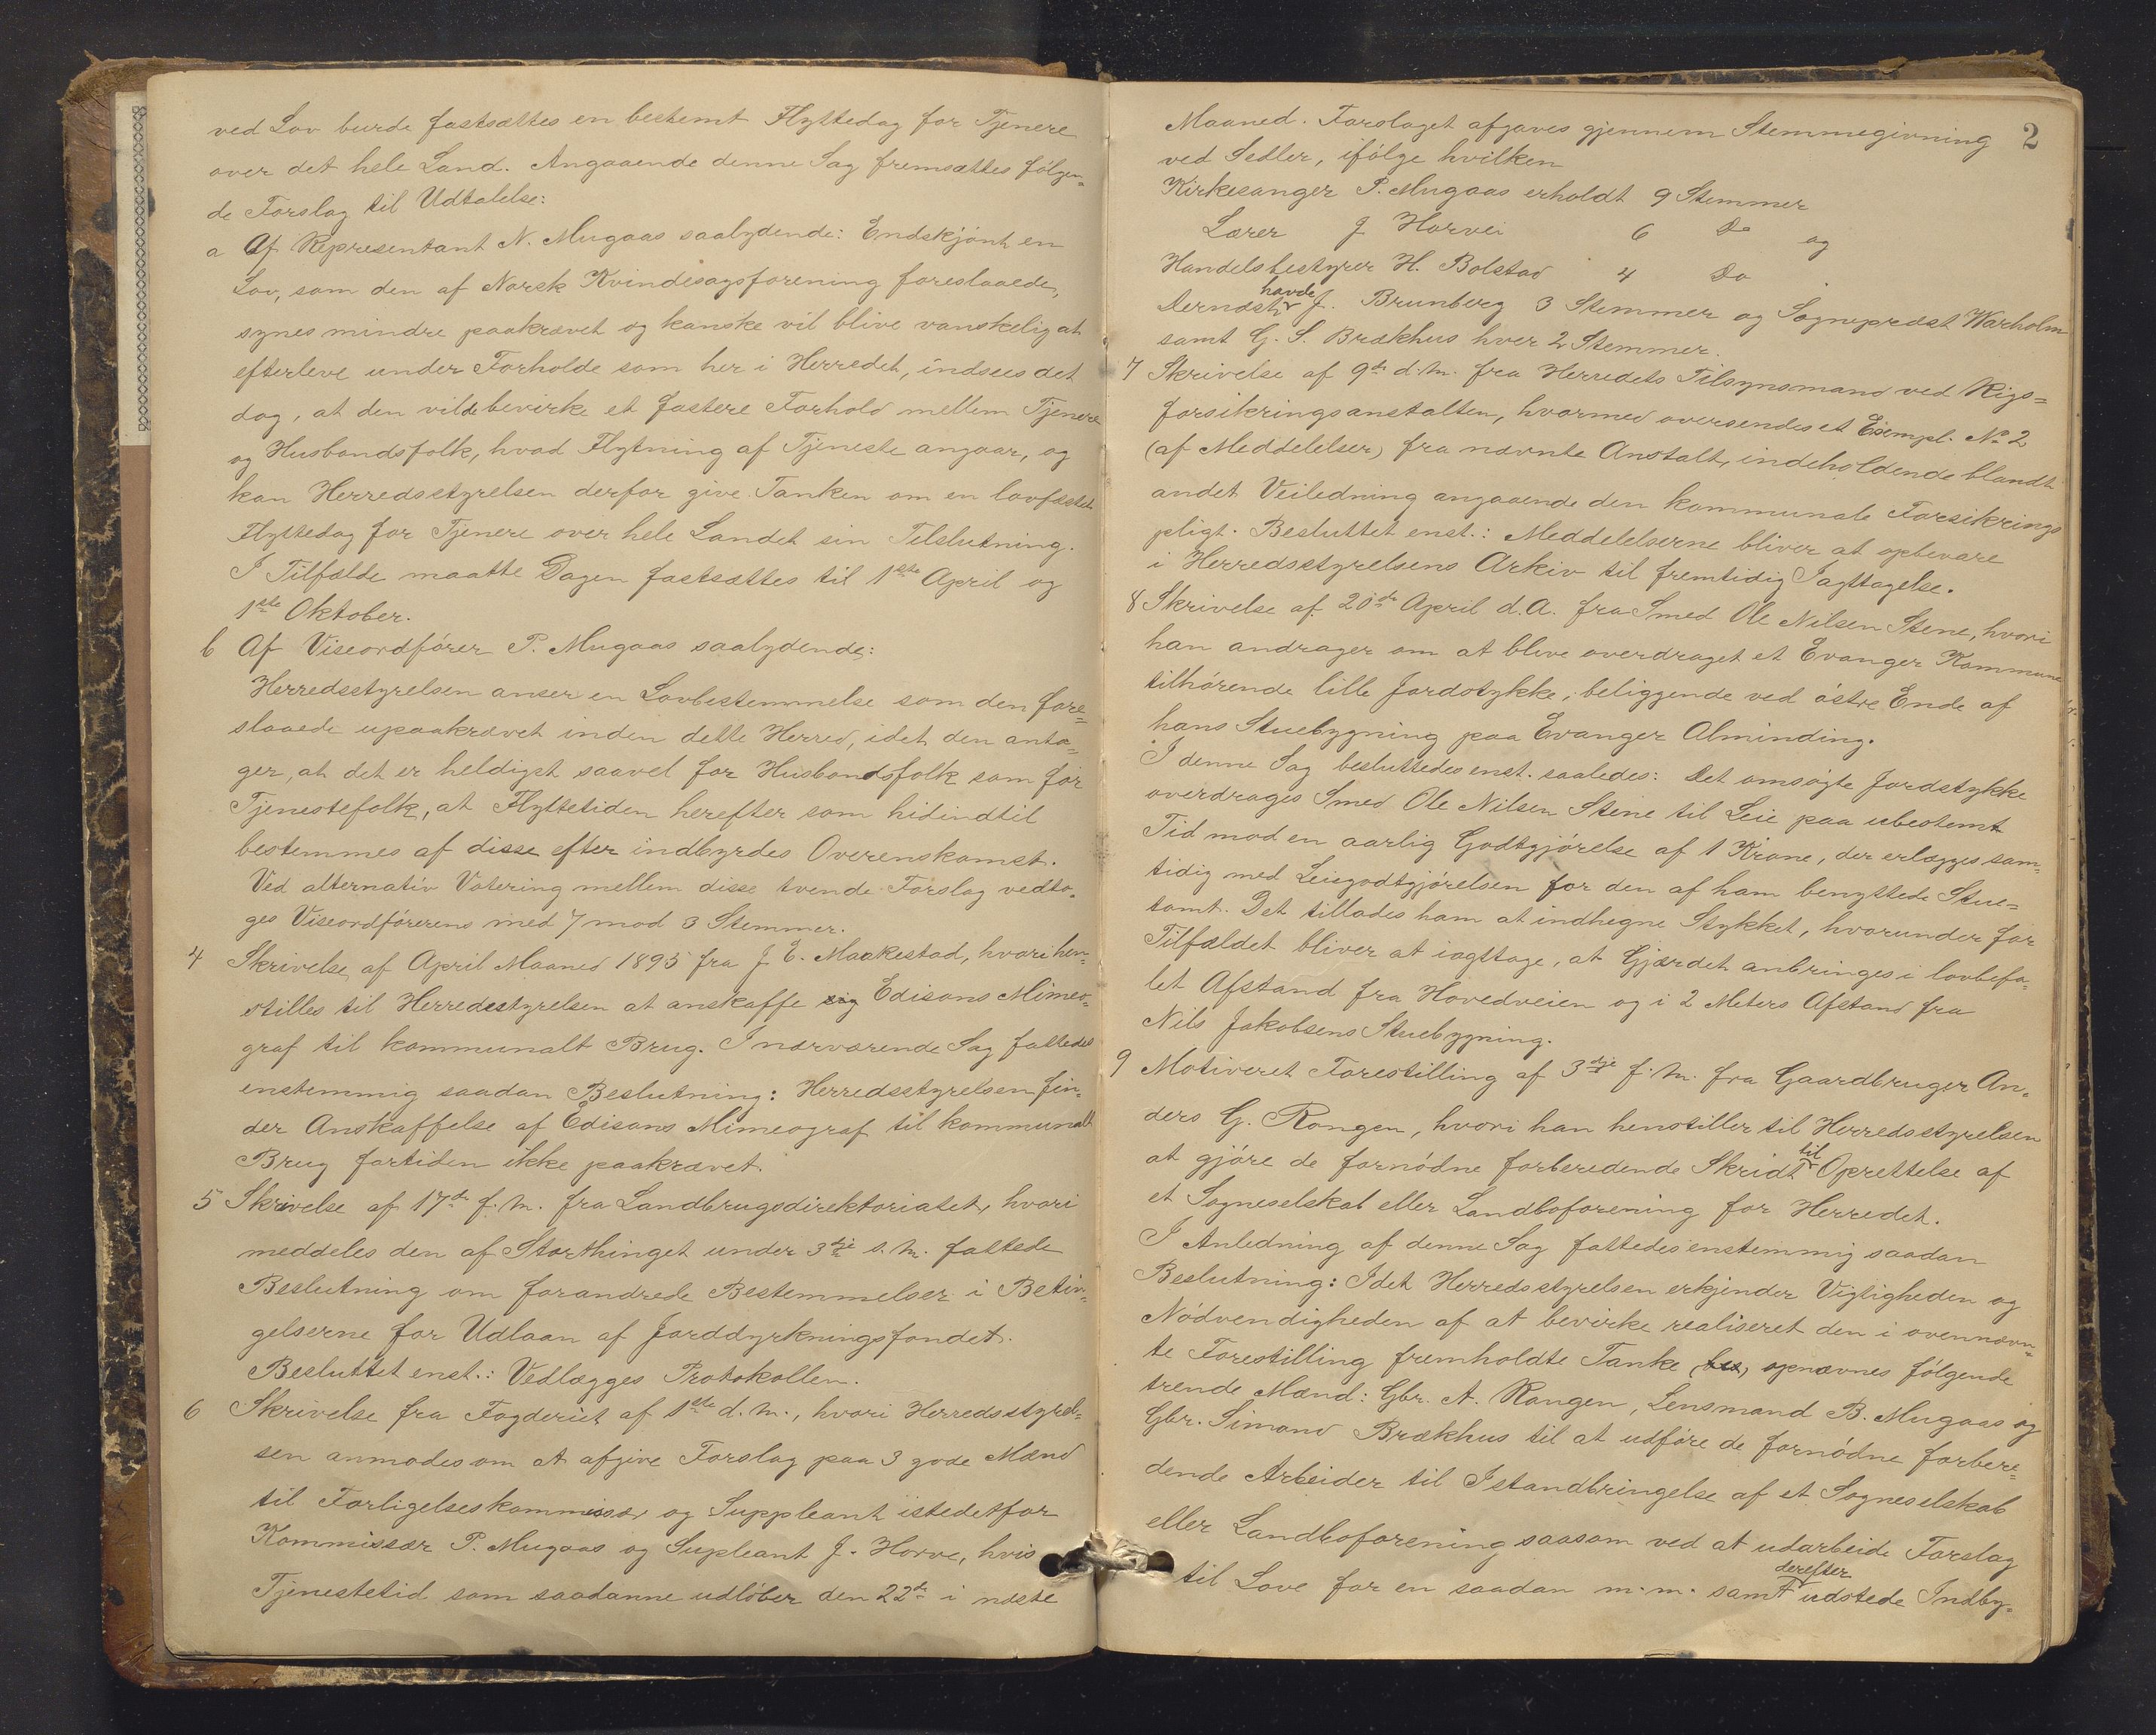 ved Lov burde fastsættes en bestemt Flyttedag for Tjenere
over det hele Land. Angaaende denne Sag fremsættes følgen-
de Forslag til Udtalelse:
a Af Repræsentant N. Mugaas saalydende: Endskjønt en
Lov, som den af Norsk Kvindesagsforening foreslaaede,
synes mindre paakrævet og kanske vil blive vanskelig at
efterleve under Forholde som her i Herredet, indsees det
dog, at den vilde bevirke et fastere Forhold mellem Tjenere
og Husbondsfolk, hvad Flytning af Tjeneste angaar, og
kan Herredsstyrelsen derfor give Tanken om en lovfæstet
Flyttedag for Tjenere over hele Landet sin Tilslutning.
I Tilfælde maatte Dagen fastsættes til 1ste April og
1ste Oktober.
b Af Viseordfører P. Mugaas saalydende:
Herredsstyrelsen anser en Lovbestemmelse som den fore=
slaaede upaakrævet inden dette Herred, idet den anta=
ger, at det er heldigst saavel for Husbondsfolk som for
Tjenestefolk, at Flyttetiden herefter som hidindtil
bestemmes af disse efter indbyrdes Overenskomst.
Ved alternativ Votering mellem disse tvende Forslag vedto-
ges Viseordførerens med 7 mod 3 Stemmer.
4 Skrivelse af April Maaned 1895 fra J. E. Maakestad, hvori hen-
stilles til Herredsstyrelsen at anskaffe sig Edisons Mimeo-
graf til kommunalt Brug. I nærværende Sag fattedes
enstemmig saadan Beslutning: Herredsstyrelsen fin-
der Anskaffelse af Edisons Mimeograf til kommunalt
Brug fortiden ikke paakrævet.
5 Skrivelse af 17de f. M. fra Landbrugsdirektoriatet, hvori
meddeles den af Storthinget under 3dje s. M. fattede
Beslutning om forandrede Bestemmelser i Betin-
gelserne for Udlaan af Jorddyrkningsfondet.
Besluttet enst.: Vedlægges Protokollen.
6 Skrivelse fra Fogderiet af 1ste d. M., hvori Herredsstyrel-
sen anmodes om at afgive Forslag paa 3 gode Mænd
til Forligelseskommissær og Suppleant istedetfor
Kommissær P. Mugaas og Supleant J. Horve, hvis
Tjenestetid som saadanne udløber den 22de i næste
2
Maaned. Forslaget afgaves gjennem Stemmegivning
ved Sedler, ifølge hvilken
Kirkesanger P. Mugaas erholdt 9 Stemmer
Lærer J Horvei 6 Do og
Handelsbestyrer H. Bolstad 4 Do.
Dernæst havde J. Brunberg 3 Stemmer og Sogneprest Warholm
samt G. S. Brækhus hver 2 Stemmer.
7 Skrivelse af 9de d. M. fra Herredets Tilsynsmand ved Rigs=
forsikringsanstalten, hvormed oversendes et Exempl. No 2
(af Meddelelser) fra nævnte Anstalt, indeholdende blandt
andet Veiledning angaaende den kommunale Forsikrings
pligt. Besluttet enst.: Meddelelserne bliver at opbevare
i Herredsstyrelsens Arkiv til fremtidig Iagttagelse.
8 Skrivelse af 20de April d. A. fra Smed Ole Nilsen Stene, hvori
han andrager om at blive overdraget et Evanger Kommune
tilhørende lille Jordstykke, beliggende ved østre Ende af
hans Stuebygning paa Evanger Alminding.
I denne Sag besluttedes enst. saaledes: Det omsøgte Jordstykke
overdrages Smed Ole Nilsen Stene til Leie paa ubestemt
Tid mod en aarlig Godtgjørelse af 1 Krone, der erlægges sam-
tidig med Leiegodtgjørelsen for den af ham benyttede Stue=
tomt. Det tillades ham at indhegne Stykket, hvorunder for
Tilfældet bliver at iagttage, at Gjærdet anbringes i lovbefa-
let Afstand fra Hovedveien og i 2 Meters Afstand fra
Nils Jakobsens Stuebygning.
9 Motiveret Forestilling af 3dje f. M. fra Gaardbruger An-
ders G. Rongen, hvori han henstiller til Herredsstyrelsen
at gjøre de fornødne forberedende Skridt til Oprettelse af
et Sogneselskab eller Landboforening for Herredet.
I Anledning af denne Sag fattedes enstemmig saadan
Beslutning: Idet Herredsstyrelsen erkjender Vigtigheden og
Nødvendigheden af at bevirke realiseret den i ovennævn-
te Forestilling fremholdte Tanke opnævnes følgende
trende Mænd: Gbr. A. Rongen, Lensmand B. Mugaas og
Gbr. Simond Brækhus til at udføre de fornødne forbere=
dende Arbeider til Istandbringelse af et Sogneselskab
eller Landboforening saasom ved at udarbeide Forslag
til Love for en saadan m. m. samt derefter udstede Indby-